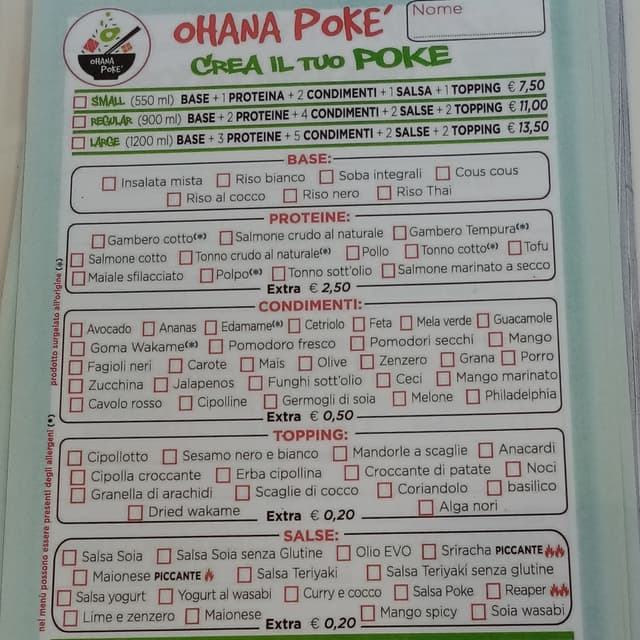 OHANA POKE'
OHANA POKE'
Nome
CREA IL TUO POKE
SMALL (550 ml) BASE + 1 PROTEINA + 2 CONDIMENTI + 1 SALSA + 1 TOPPING € 7,50
REGULAR (900 ml) BASE + 2 PROTEINE + 4 CONDIMENTI + 2 SALSE + 2 TOPPING € 11,00
LARGE (1200 ml) BASE + 3 PROTEINE + 5 CONDIMENTI + 2 SALSE + 2 TOPPING € 13,50
BASE:
Insalata mista Riso bianco Soba integrali Cous cous
Riso al cocco Riso nero Riso Thai
PROTEINE:
Gambero cotto(*) Salmone crudo al naturale Gambero Tempura(*)
Salmone cotto Tonno crudo al naturale(*) Pollo Tonno cotto(*) Tofu
Maiale sfilacciato Polpo(*) Tonno sott'olio Salmone marinato a secco
Extra € 2,50
CONDIMENTI:
Avocado Ananas Edamame(*) Cetriolo Feta Mela verde Guacamole
Goma Wakame(*) Pomodoro fresco Pomodori secchi Mango
Fagioli neri Carote Mais Olive Zenzero Grana Porro
Zucchina Jalapenos Funghi sott'olio Ceci Mango marinato
Cavolo rosso Cipolline Germogli di soia Melone Philadelphia
Extra € 0,50
TOPPING:
Cipollotto Sesamo nero e bianco Mandorle a scaglie Anacardi
Cipolla croccante Erba cipollina Croccante di patate Noci
Granella di arachidi Scaglie di cocco Coriandolo basilico
Dried wakame Alga nori
Extra € 0,20
SALSE:
Salsa Soia Salsa Soia senza Glutine Olio EVO Sriracha PICCANTE
Maionese PICCANTE Salsa Teriyaki Salsa Teriyaki senza glutine
Salsa yogurt Yogurt al wasabi Curry e cocco Salsa Poke Reaper
Lime e zenzero Maionese Mango spicy Soia wasabi
Extra € 0,20
prodotto surgelato all'origine (*)
nel menù possono essere presenti degli allergeni (*)